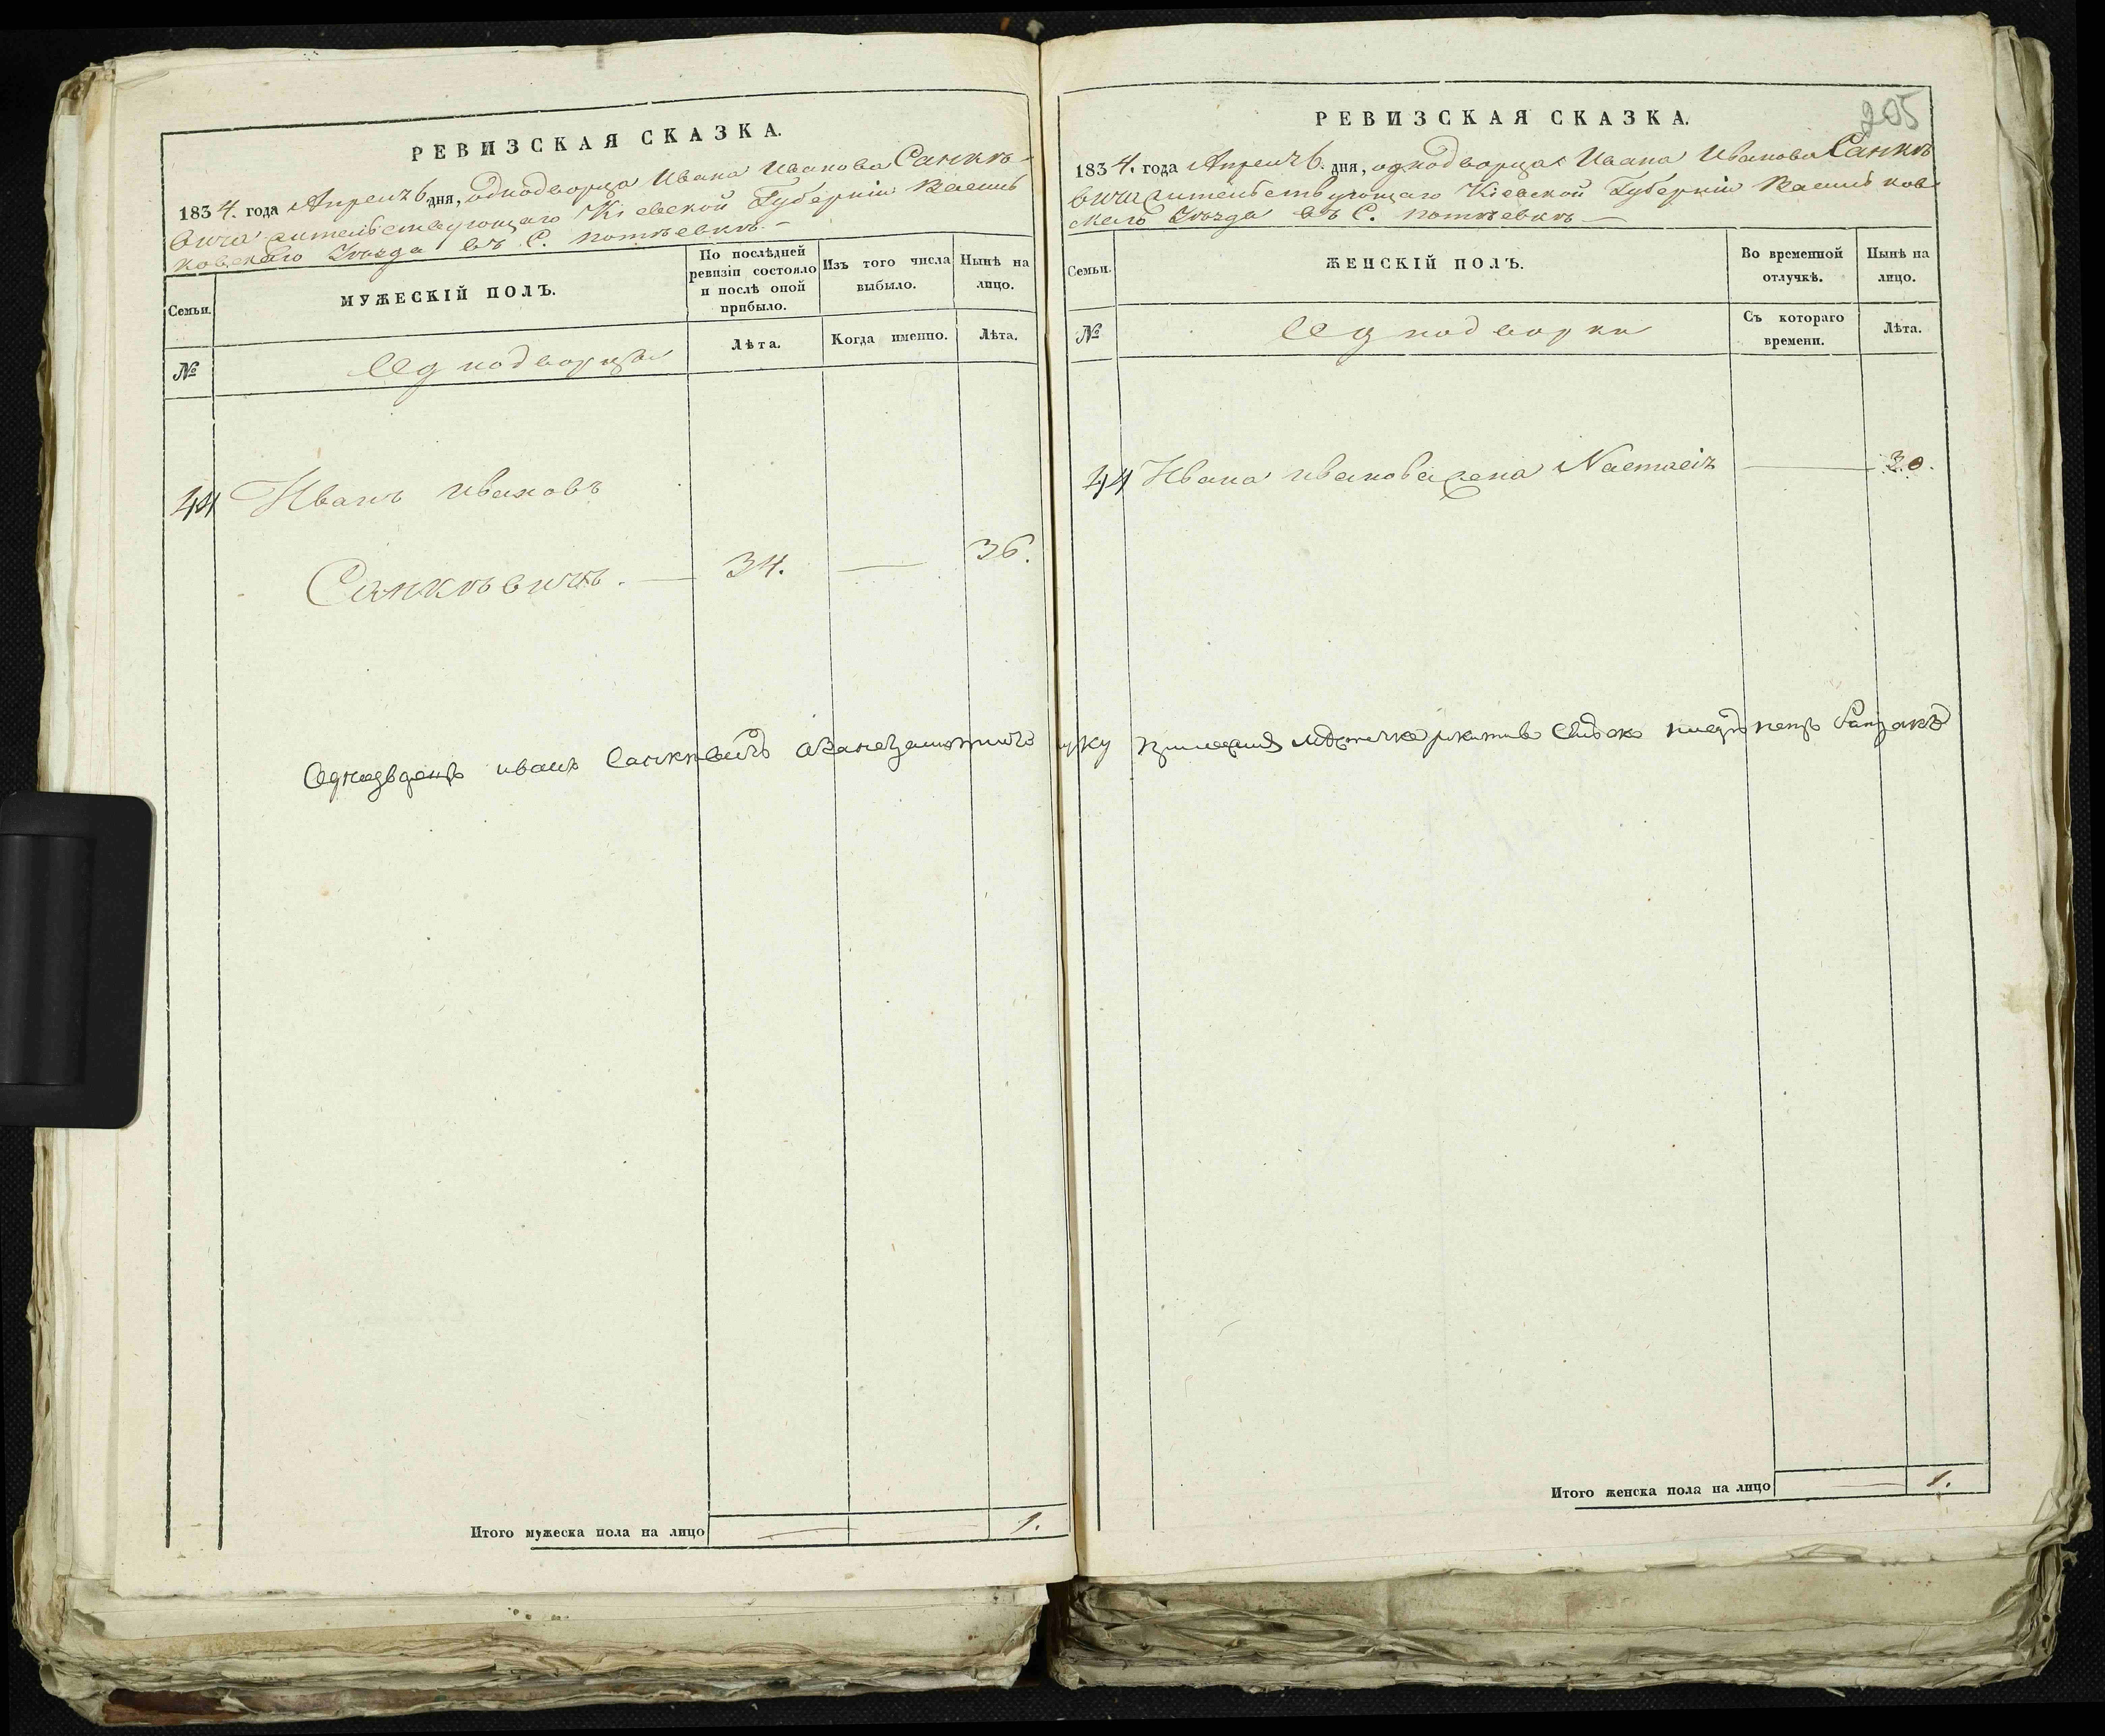 РЕВИЗСКАЯ СКАЗКА.
1834. года Апреля 6. дня, однодворца Ивана Иванова Санкѣ-
вича жительствующаго Кіевской Губерніи Василь
ковскаго Уѣзда въ С. Потѣевкѣ. —
Семьи.
МУЖЕСКІЙ ПОЛЪ.
По послѣдней
ревизіи состояло
и послѣ оной
прибыло.
Изъ того числа
выбыло.
Нынѣ на
лицо.
№
Однодворцы
Лѣта.
Когда именно.
Лѣта.
44 Иванъ Ивановъ
Санкѣвичъ. — 34. — 36.
Однодворецъ иванъ Санкѣвичъ
Итого мужеска пола на лицо — — 1.
205
РЕВИЗСКАЯ СКАЗКА.
1834. года Апреля 6. дня, однодворца Ивана Иванова Санкѣ
вича жительствующаго Кіевской Губерніи Василь ков
скаго Уѣзда въ С. Потѣевкѣ —
Семьи.
ЖЕНСКІЙ ПОЛЪ.
Во временной
отлучкѣ.
Нынѣ на
лицо.
№
Однодворки
Съ котораго
времени.
Лѣта.
44 Ивана Иванова жена Настасія — 30.
Итого женска пола на лицо — 1.